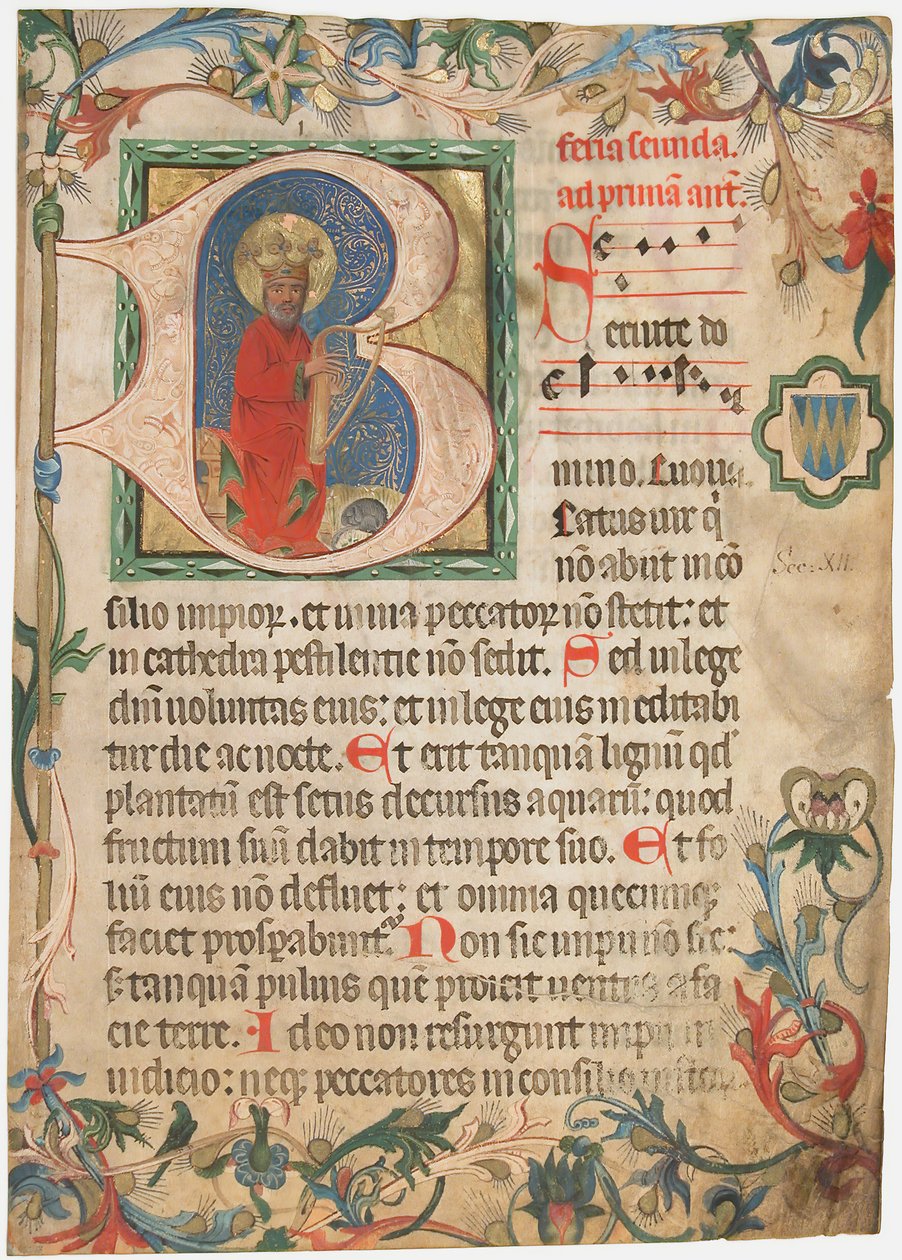 feria secunda.
ad primā anť.
Seruite do
mino. Euoua.
B
eatus uir q̇
nō abiit in cō
silio impioꝝ. et in uia peccatoꝝ nō stetit: et
in cathedra pestilentie nō sedit. Sed in lege
dn̄i uoluntas eius: et in lege eius meditabi
tur die ac nocte. Et erit tanquā lignū qd'
plantatū est secus decursus aquarū: quod
fructum suū dabit in tempore suo. Et fo
liū eius nō defluet: et omnia quecumqꝫ
faciet prosꝑabuntᷣ. Non sic impii nō sic:
s; tanquā puluis quē proicit uentus a fa
cie terre. Ideo non resurgunt impii in
iudicio: neqꝫ peccatores in consilio iustoꝝ
Sec: XII.